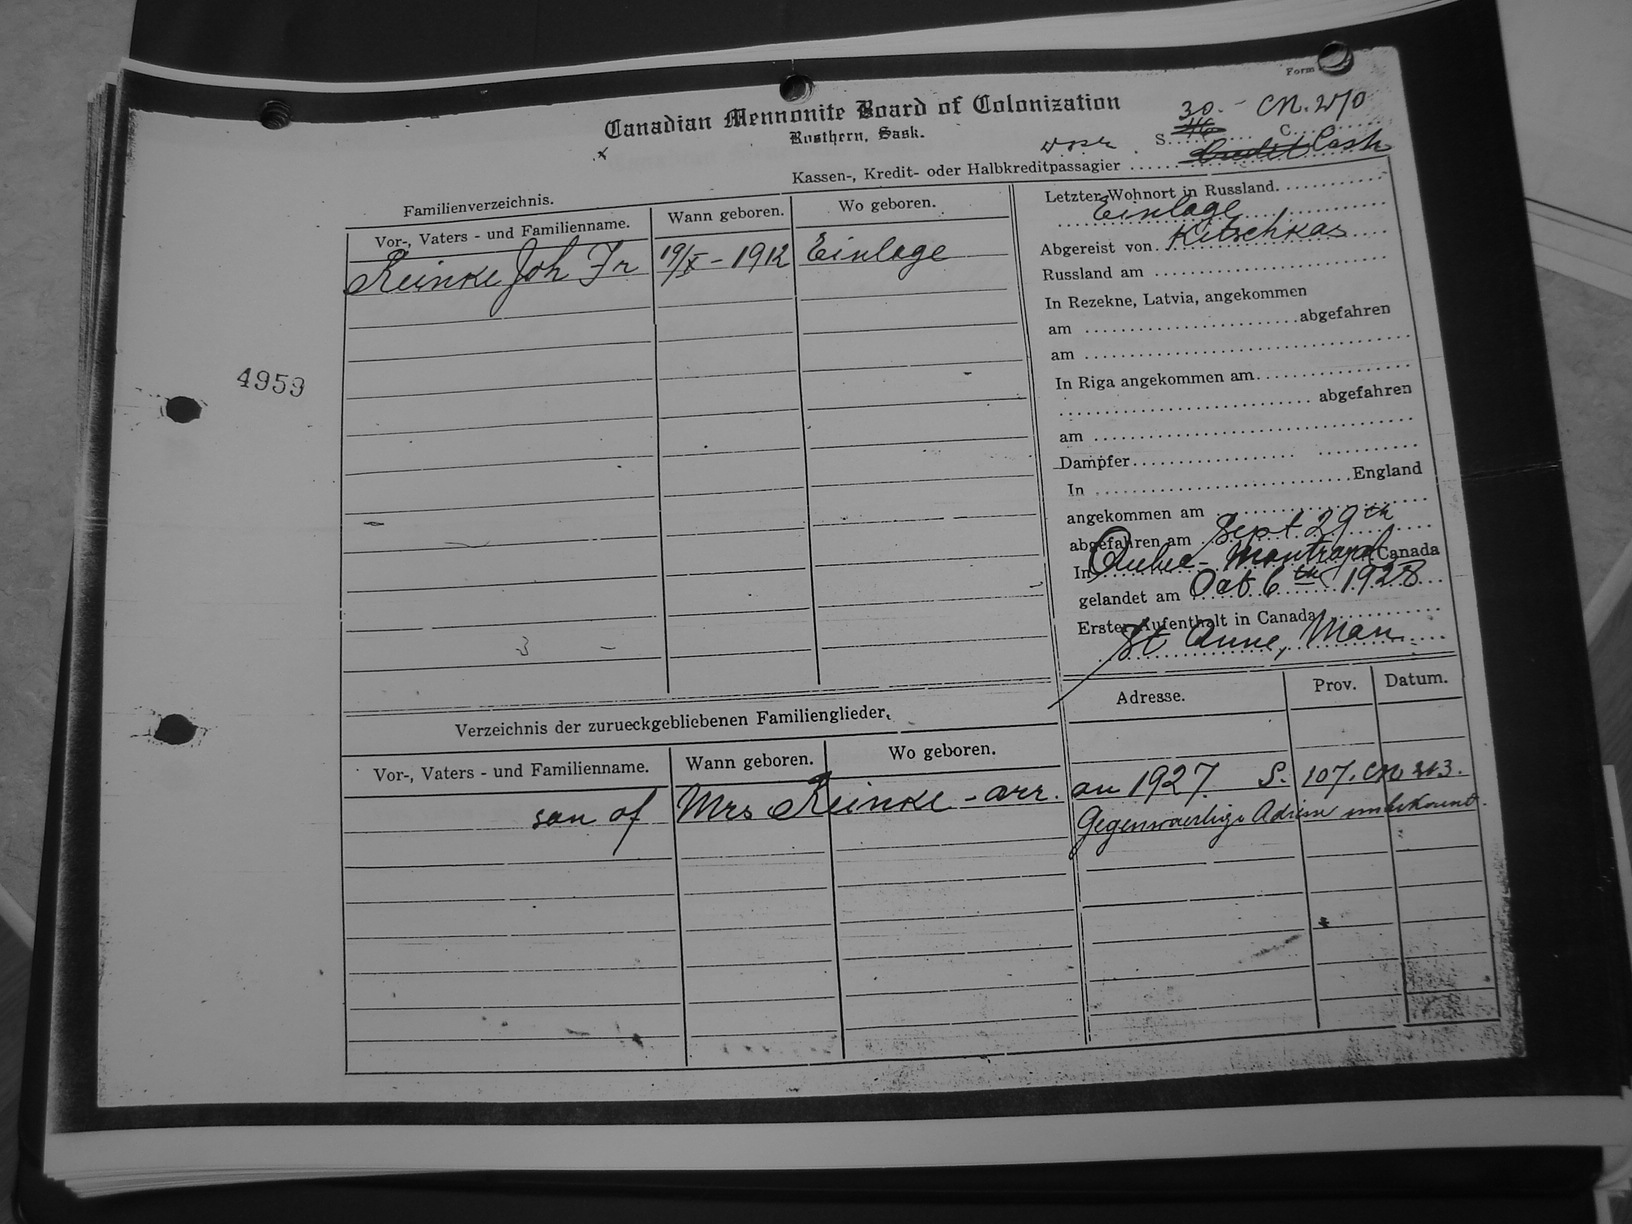 Form
Canadian Mennonite Board of Colonization
Rosthern, Sask.
30.- CN. 270
S. C.
Kassen-, Kredit- oder Halbkreditpassagier Credit Cash
Familienverzeichnis.
Vor-, Vaters - und Familienname. Wann geboren. Wo geboren.
Reinke Joh Fr 19/X - 1912 Einlage
4959
Letzter Wohnort in Russland
Einlage
Abgereist von Kitschkas
Russland am
In Rezekne, Latvia, angekommen
am abgefahren
am
In Riga angekommen am
abgefahren
am
Dampfer
In England
angekommen am
abgefahren am Sept 29th
In Quebec - Montreal Canada
gelandet am Oct 6th 1928
Erster Aufenthalt in Canada
St Anne, Man
Verzeichnis der zurueckgebliebenen Familienglieder.
Adresse. Prov. Datum.
Vor-, Vaters - und Familienname. Wann geboren. Wo geboren.
son of Mrs Reinke - arr. on 1927 S. 107. CN 213.
Gegenwaertige Adresse unbekannt.